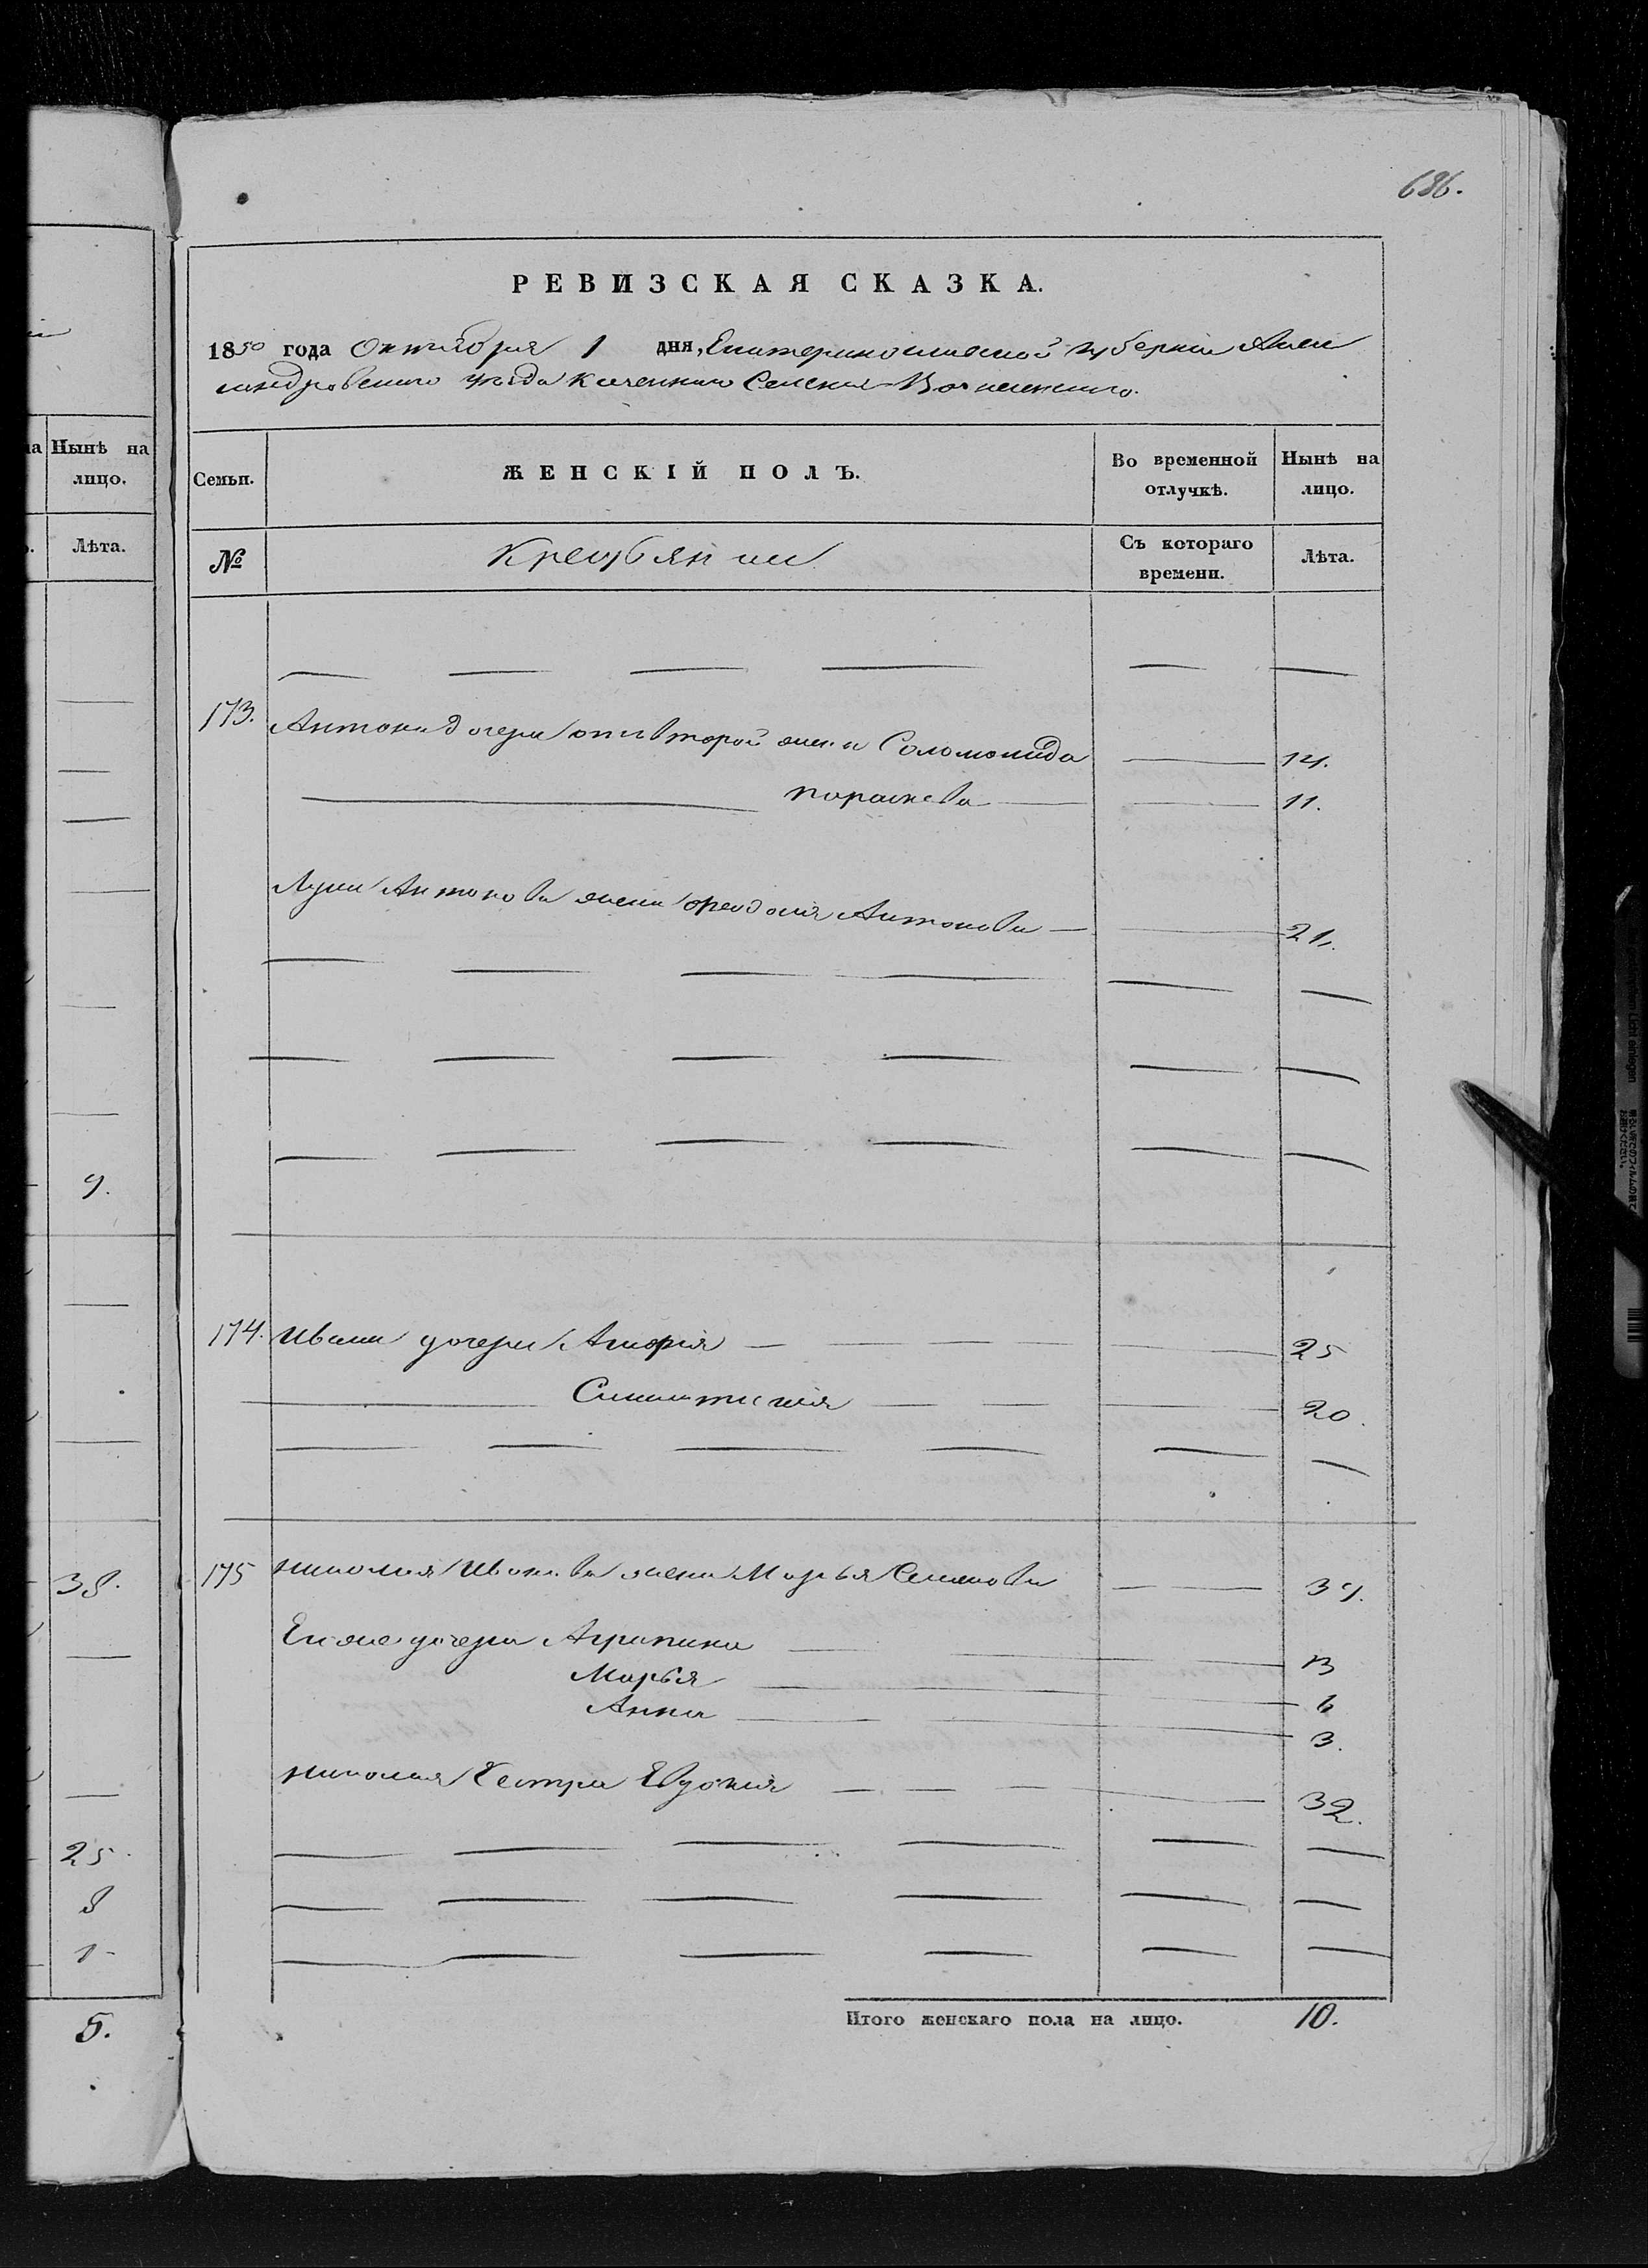 686.
РЕВИЗСКАЯ СКАЗКА.
1850 года Октября 1 дня, Екатеринославской губерніи Алек
сандровскаго уѣзда казеннаго Селенія Вознесенскаго.
на Нынѣ на лицо.
Лѣта.
9.
38.
25.
8
1
5.
Семьи. ЖЕНСКІЙ ПОЛЪ. Во временной отлучкѣ. Нынѣ на лицо.
№ Крестьяне Съ котораго времени. Лѣта.
173. Антона дочери отъ второй жены Соломонида 14.
Параскева 11.
Луки Антонова жена Феодосія Антонова 21.
174. Ивана дочери Агафія 25
20.
175 Николая Иванова жена Марья Семенова 39.
Его же дочери Агрипина 13
Марья 6
Анна 3.
Николая Сестра Евдокія 32.
Итого женскаго пола на лицо. 10.